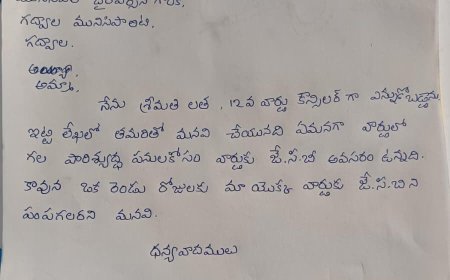 మునిసిపల్ చైర్‌పర్సన్ గారికి,
గద్వాల మునిసిపాలిటి.
గద్వాల.
అయ్యా
అమ్మా,
నేను శ్రీమతి లత, 12వ వార్డు కౌన్సిలర్ గా ఎన్నుకోబడ్డాను
ఇట్టి లేఖలో తమరితో మనవి చేయునది ఏమనగా వార్డులో
గల పారిశుధ్ధ పనులకోసం వార్డుకు జే.సి.బీ అవసరం ఉన్నది.
కావున ఒక రెండు రోజులకు మా యొక్క వార్డుకు జే.సి.బి ని
పంపగలరని మనవి.
ధన్యవాదములు